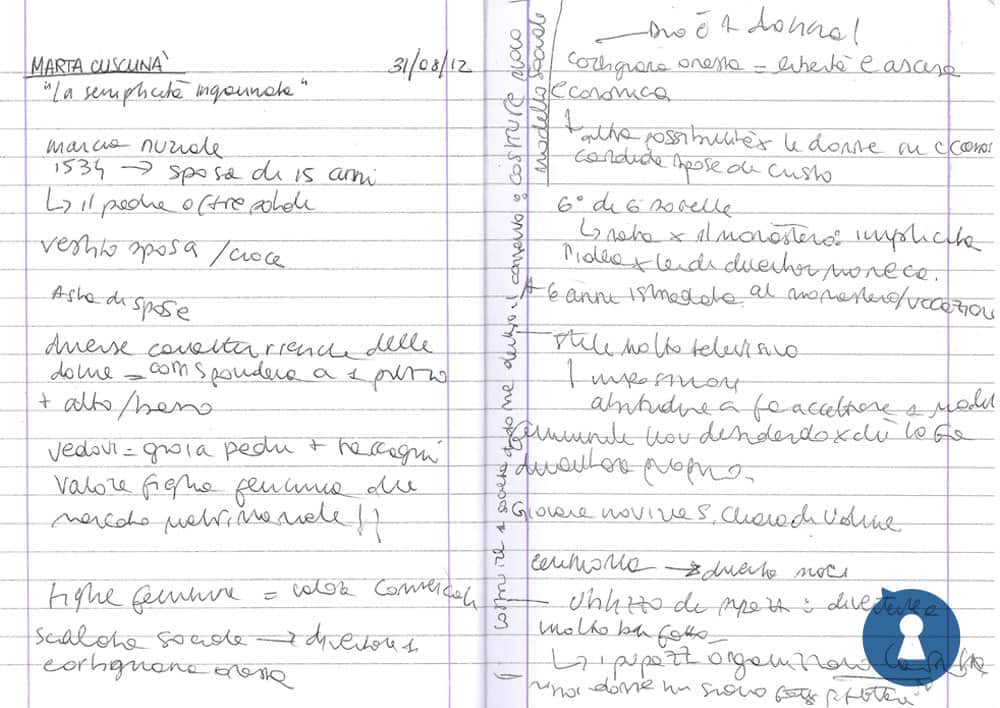 MARTA CUSCUNÀ 31/08/12
"La semplicità ingannata"
marcia nuziale
1534 → sposa di 15 anni
↳ il padre offre soldi
vestito sposa / croce
Asta di spose
diverse caratteristiche delle
donne = corrispondera a 1 prezzo
+ alto / basso
vedovi = gioia padri +
valore figlia femmina
mercato matrimoniale!!
Figlie femmine = valore commerciale
scalata sociale → diventare
cortigiana onesta
costruire 1 società di donne dentro il convento e costruire nuovo
modello sociale
Dio è 1 donna!
cortigiana onesta = libertà e ascesa
economica
1 altra possibilità x le donne
candide spose di Cristo
6° di 6 sorelle
↳ nata x il monastero: implicita
l'idea x lei di diventar monaca.
A 6 anni è mandata al monastero/vocazione
stile molto televisivo
imposizione
abitudine a fa accettare 1 model
femminile non desiderato xchè lo fa
diventare proprio.
Giovane novizia S. Chiara di Udine
cerimonia → diventa
utilizzo di pupazzi: divertente
molto ben fatto
↳ i pupazzi organizzano la
donne un nuovo